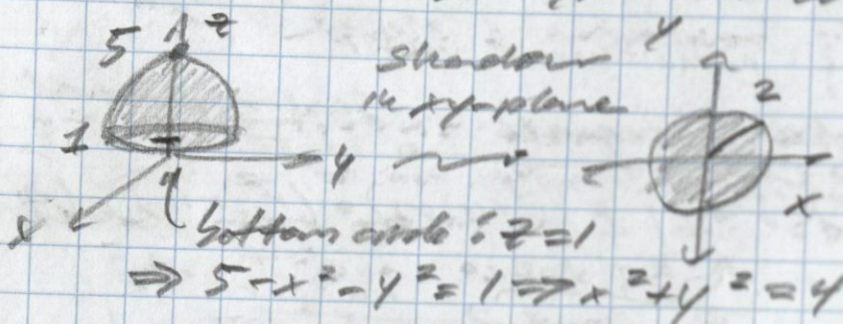 5 z
shadow y
in xy-plane 2
1
y
x x
bottom circle : z = 1
⇒ 5 - x² - y² = 1 ⇒ x² + y² = 4